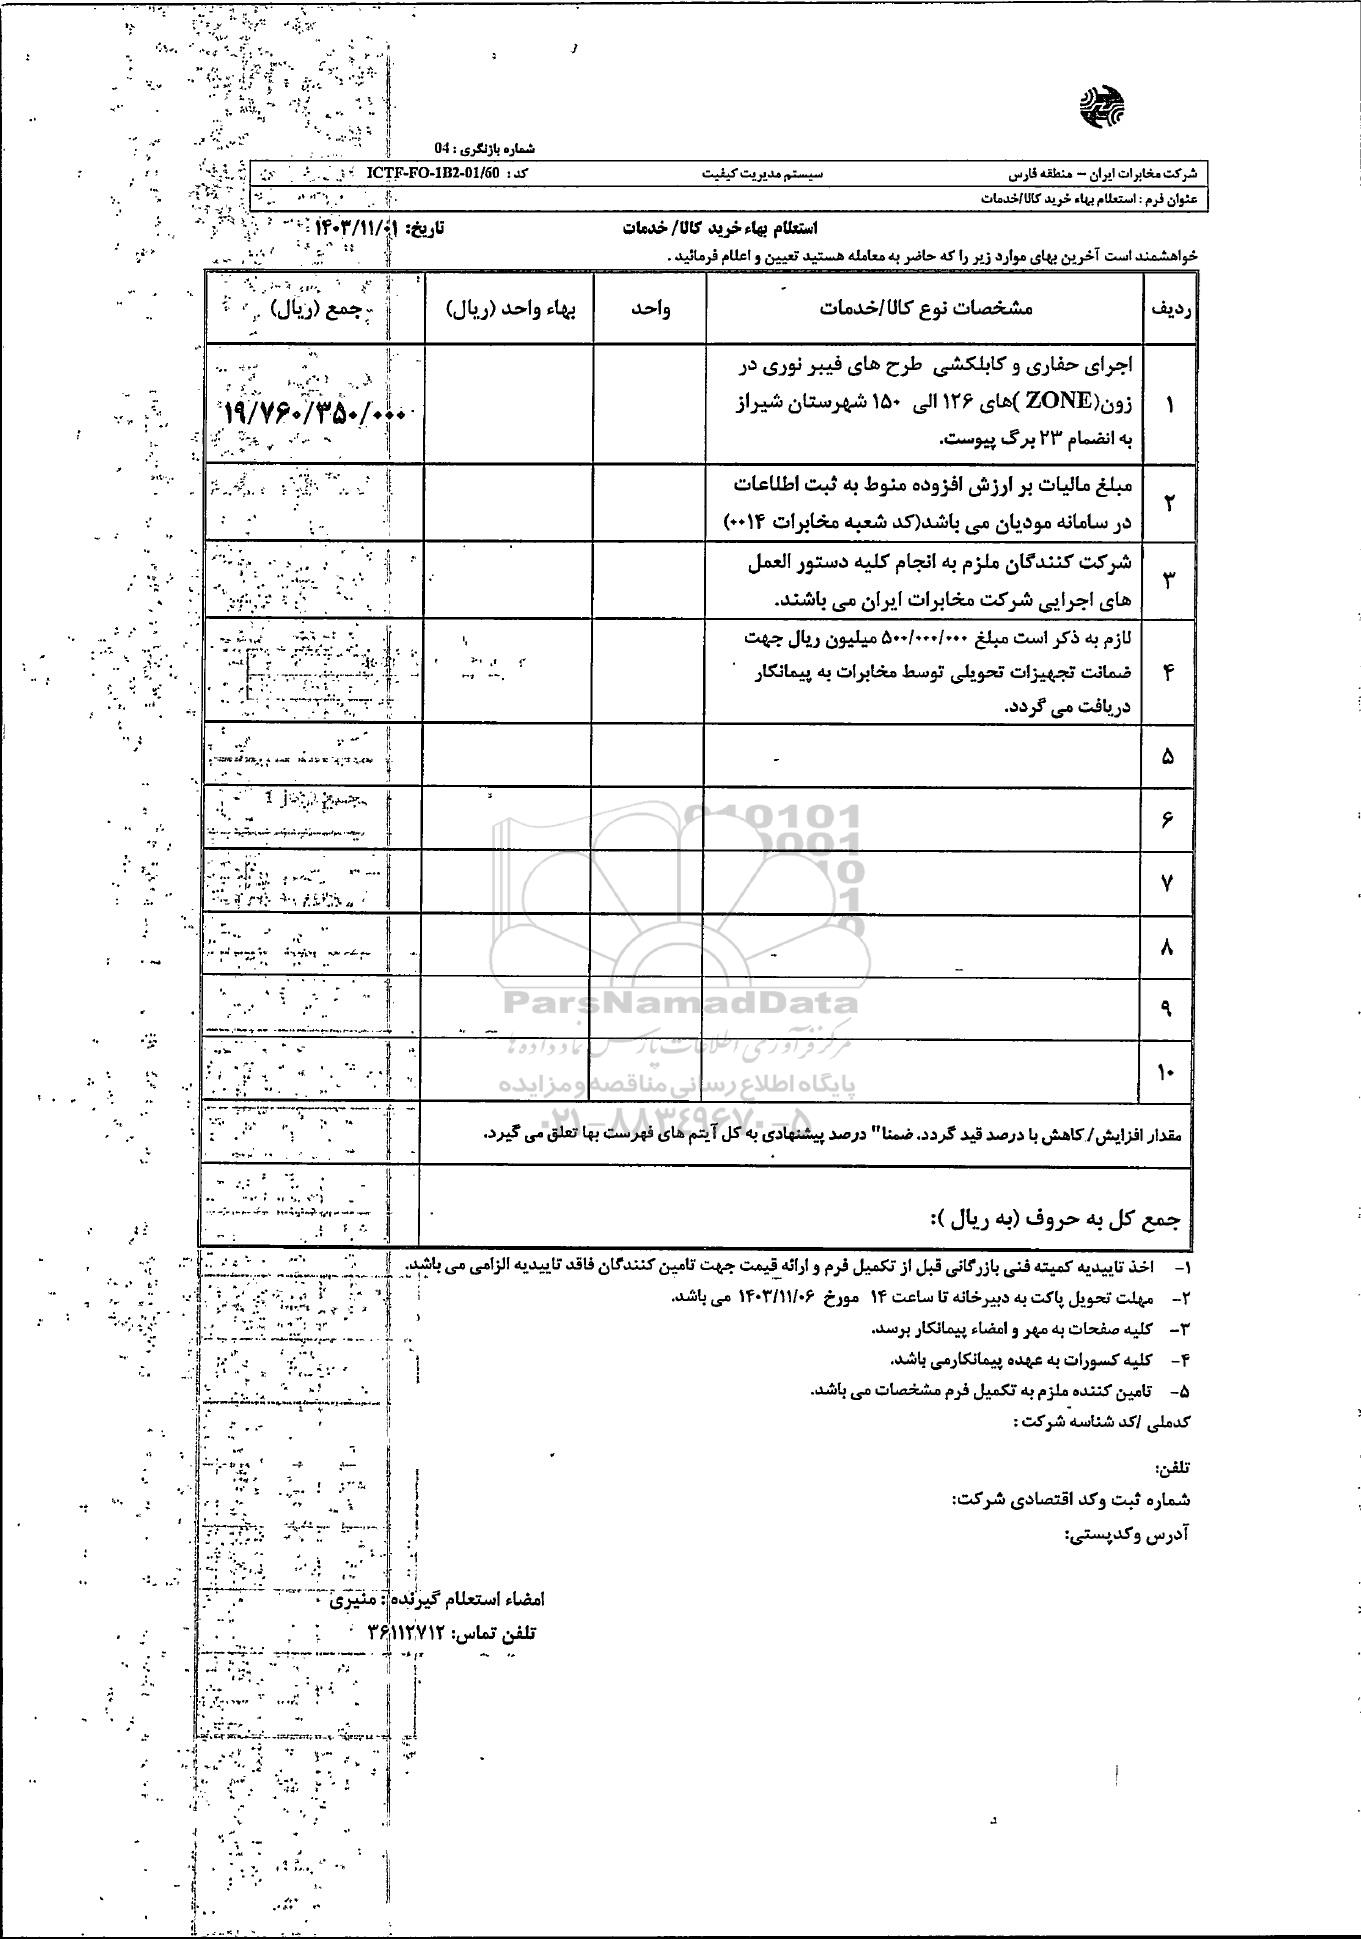 شماره بازنگری : 04
شرکت مخابرات ایران – منطقه فارس
سیستم مدیریت کیفیت
کد : ICTF-FO-1B2-01/60
عنوان فرم : استعلام بهاء خرید کالا/خدمات
استعلام بهاء خرید کالا/ خدمات
تاریخ: ۱۴۰۳/۱۱/۰۱
خواهشمند است آخرین بهای موارد زیر را که حاضر به معامله هستید تعیین و اعلام فرمائید .
ردیف
مشخصات نوع کالا/خدمات
واحد
بهاء واحد (ریال)
جمع (ریال)
۱
اجرای حفاری و کابلکشی طرح های فیبر نوری در
زون(ZONE )های ۱۲۶ الی ۱۵۰ شهرستان شیراز
به انضمام ۲۳ برگ پیوست.
۱۹/۷۶۰/۳۵۰/۰۰۰
۲
مبلغ مالیات بر ارزش افزوده منوط به ثبت اطلاعات
در سامانه مودیان می باشد(کد شعبه مخابرات ۰۰۱۴)
۳
شرکت کنندگان ملزم به انجام کلیه دستور العمل
های اجرایی شرکت مخابرات ایران می باشند.
۴
لازم به ذکر است مبلغ ۵۰۰/۰۰۰/۰۰۰ میلیون ریال جهت
ضمانت تجهیزات تحویلی توسط مخابرات به پیمانکار
دریافت می گردد.
۵
۶
۷
۸
۹
۱۰
ParsNamadData
مرکز فرآوری اطلاعات پارس نماد داده ها
پایگاه اطلاع رسانی مناقصه و مزایده
۰۲۱-۸۸۳۴۹۶۷۰-۵
مقدار افزایش/ کاهش با درصد قید گردد. ضمنا" درصد پیشنهادی به کل آیتم های فهرست بها تعلق می گیرد.
جمع کل به حروف (به ریال ):
۱- اخذ تاییدیه کمیته فنی بازرگانی قبل از تکمیل فرم و ارائه قیمت جهت تامین کنندگان فاقد تاییدیه الزامی می باشد.
۲- مهلت تحویل پاکت به دبیرخانه تا ساعت ۱۴ مورخ ۱۴۰۳/۱۱/۰۶ می باشد.
۳- کلیه صفحات به مهر و امضاء پیمانکار برسد.
۴- کلیه کسورات به عهده پیمانکارمی باشد.
۵- تامین کننده ملزم به تکمیل فرم مشخصات می باشد.
کدملی /کد شناسه شرکت :
تلفن:
شماره ثبت وکد اقتصادی شرکت:
آدرس وکدپستی:
امضاء استعلام گیرنده : منیری
تلفن تماس: ۳۶۱۱۲۷۱۲